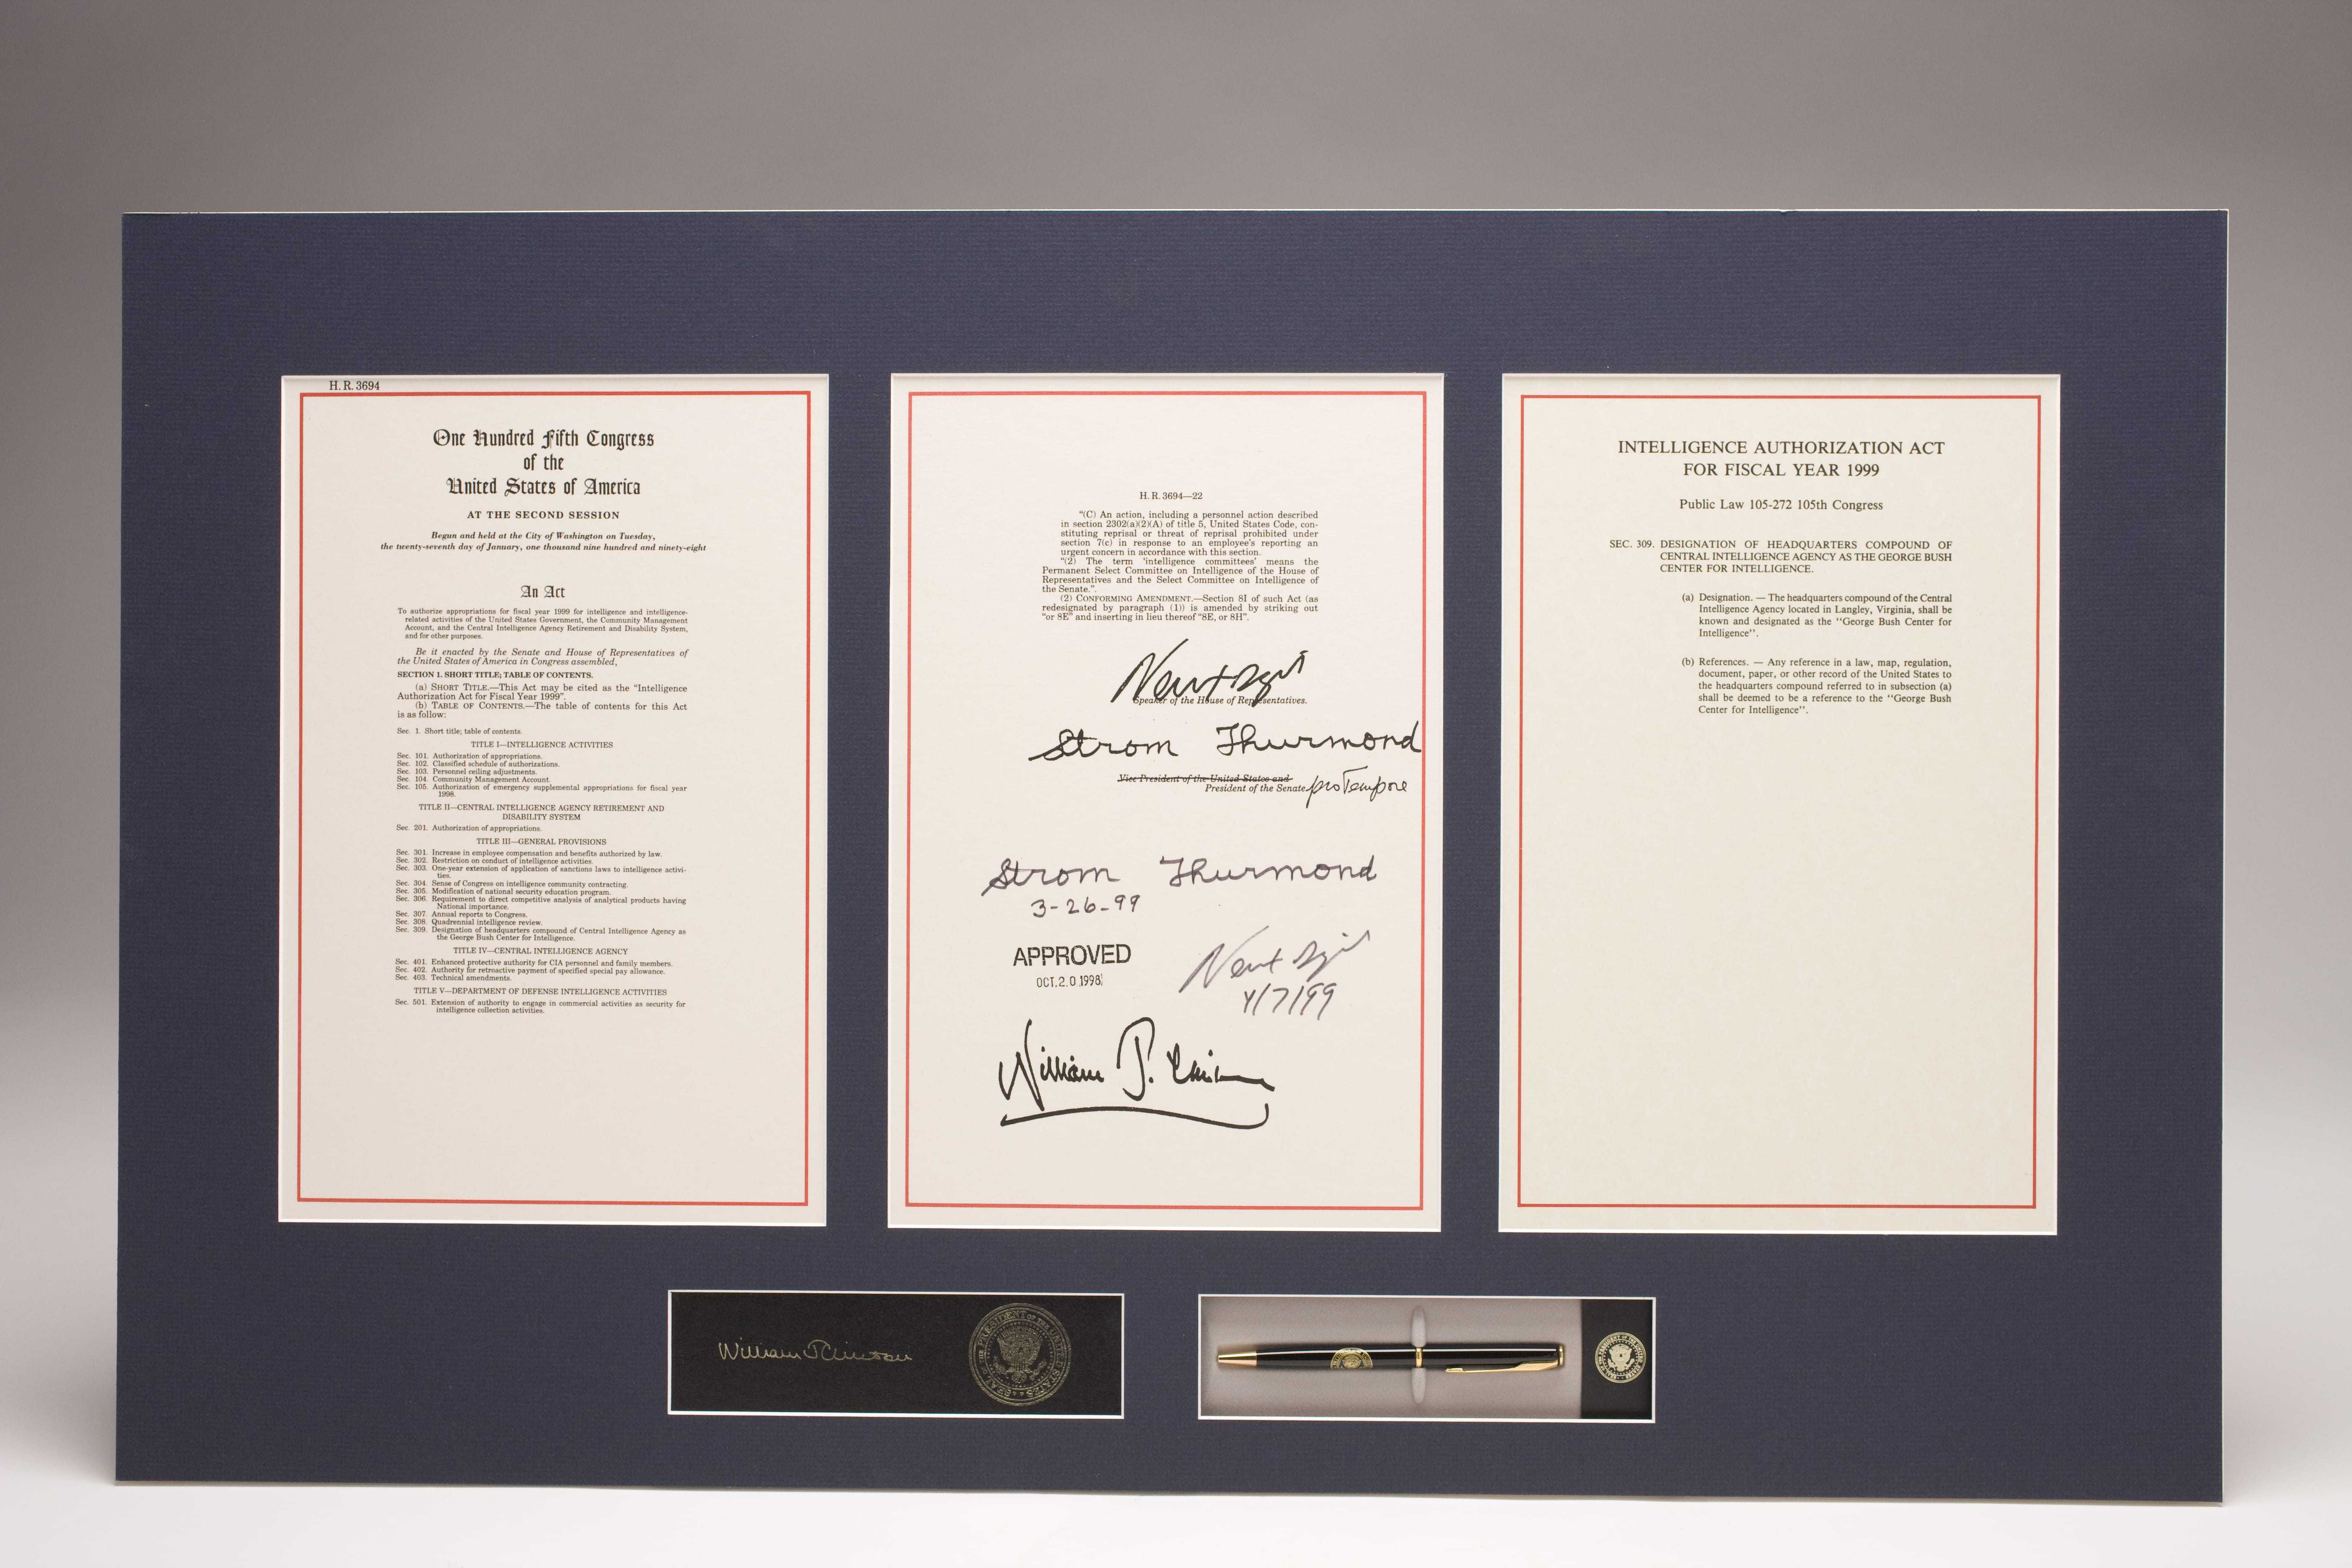 H. R. 3694
One Hundred Fifth Congress
of the
United States of America
AT THE SECOND SESSION
Begun and held at the City of Washington on Tuesday,
the twenty-seventh day of January, one thousand nine hundred and ninety-eight
An Act
To authorize appropriations for fiscal year 1999 for intelligence and intelligence-
related activities of the United States Government, the Community Management
Account, and the Central Intelligence Agency Retirement and Disability System,
and for other purposes.
Be it enacted by the Senate and House of Representatives of
the United States of America in Congress assembled,
SECTION 1. SHORT TITLE; TABLE OF CONTENTS.
(a) SHORT TITLE.—This Act may be cited as the “Intelligence
Authorization Act for Fiscal Year 1999”.
(b) TABLE OF CONTENTS.—The table of contents for this Act
is as follow:
Sec. 1. Short title; table of contents.
TITLE I—INTELLIGENCE ACTIVITIES
Sec. 101. Authorization of appropriations.
Sec. 102. Classified schedule of authorizations.
Sec. 103. Personnel ceiling adjustments.
Sec. 104. Community Management Account.
Sec. 105. Authorization of emergency supplemental appropriations for fiscal year
1998.
TITLE II—CENTRAL INTELLIGENCE AGENCY RETIREMENT AND
DISABILITY SYSTEM
Sec. 201. Authorization of appropriations.
TITLE III—GENERAL PROVISIONS
Sec. 301. Increase in employee compensation and benefits authorized by law.
Sec. 302. Restriction on conduct of intelligence activities.
Sec. 303. One-year extension of application of sanctions laws to intelligence activi-
ties.
Sec. 304. Sense of Congress on intelligence community contracting.
Sec. 305. Modification of national security education program.
Sec. 306. Requirement to direct competitive analysis of analytical products having
National importance.
Sec. 307. Annual reports to Congress.
Sec. 308. Quadrennial intelligence review.
Sec. 309. Designation of headquarters compound of Central Intelligence Agency as
the George Bush Center for Intelligence.
TITLE IV—CENTRAL INTELLIGENCE AGENCY
Sec. 401. Enhanced protective authority for CIA personnel and family members.
Sec. 402. Authority for retroactive payment of specified special pay allowance.
Sec. 403. Technical amendments.
TITLE V—DEPARTMENT OF DEFENSE INTELLIGENCE ACTIVITIES
Sec. 501. Extension of authority to engage in commercial activities as security for
intelligence collection activities.
H. R. 3694—22
“(C) An action, including a personnel action described
in section 2302(a)(2)(A) of title 5, United States Code, con-
stituting reprisal or threat of reprisal prohibited under
section 7(c) in response to an employee's reporting an
urgent concern in accordance with this section.
“(2) The term ‘intelligence committees’ means the
Permanent Select Committee on Intelligence of the House of
Representatives and the Select Committee on Intelligence of
the Senate.”.
(2) CONFORMING AMENDMENT.—Section 8I of such Act (as
redesignated by paragraph (1)) is amended by striking out
“or 8E” and inserting in lieu thereof “8E, or 8H”.
Speaker of the House of Representatives.
Strom Thurmond
Vice President of the United States and
President of the Senate pro Tempore
Strom Thurmond
3-26-99
APPROVED
OCT. 2 0 1998
4/7/99
William J. Clinton
INTELLIGENCE AUTHORIZATION ACT
FOR FISCAL YEAR 1999
Public Law 105-272 105th Congress
SEC. 309. DESIGNATION OF HEADQUARTERS COMPOUND OF
CENTRAL INTELLIGENCE AGENCY AS THE GEORGE BUSH
CENTER FOR INTELLIGENCE.
(a) Designation. — The headquarters compound of the Central
Intelligence Agency located in Langley, Virginia, shall be
known and designated as the ‘‘George Bush Center for
Intelligence’’.
(b) References. — Any reference in a law, map, regulation,
document, paper, or other record of the United States to
the headquarters compound referred to in subsection (a)
shall be deemed to be a reference to the ‘‘George Bush
Center for Intelligence’’.
William J Clinton
SEAL OF THE PRESIDENT OF THE UNITED STATES